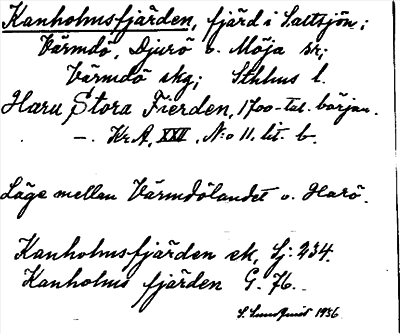 Kanholmsfjärden, fjärd i Saltsjön;
Värmdö, Djurö o. Möja snr;
Värmdö skg; Sthlms l.
Haru Stora Fierden, 1700-tal. början.
-. KrA, XXII, N:o 11. lit. b.
Läge mellan Värmdölandet o. Harö.
Kanholmsfjärden ek, Sj: 234.
Kanholms fjärden G. 76.
1936